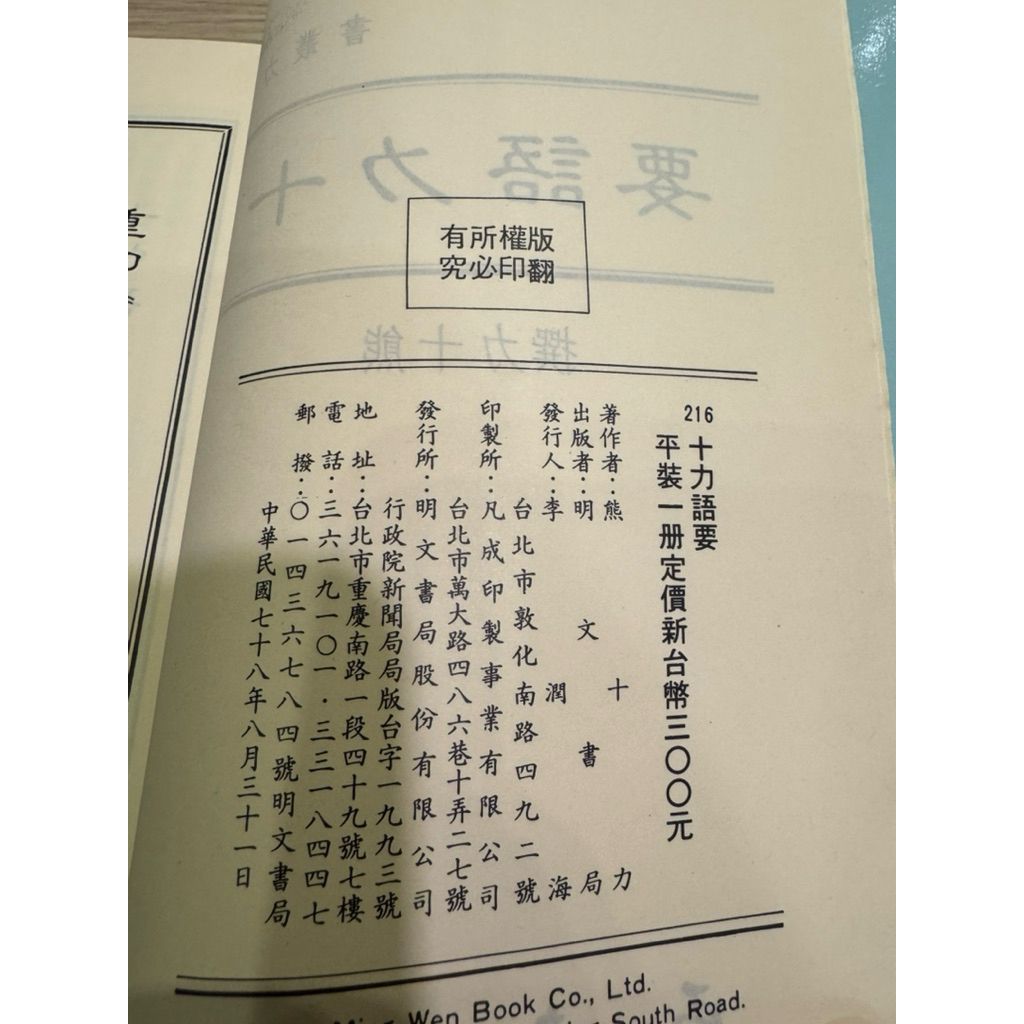 版權所有
翻印必究
216
十力語要
平裝一册定價新台幣三〇〇元
著作者：熊十力
出版者：明文書局
發行人：李潤海
台北市敦化南路四九二號
印製所：凡成印製事業有限公司
台北市萬大路四八六巷十弄二七號
發行所：明文書局股份有限公司
行政院新聞局局版台字一九九三號
地址：台北市重慶南路一段四十九號七樓
電話：三六一九一〇一·三三一八四四七
郵撥：〇一四三六七八四號明文書局
中華民國七十八年八月三十一日
Wen Book Co., Ltd.
South Road.